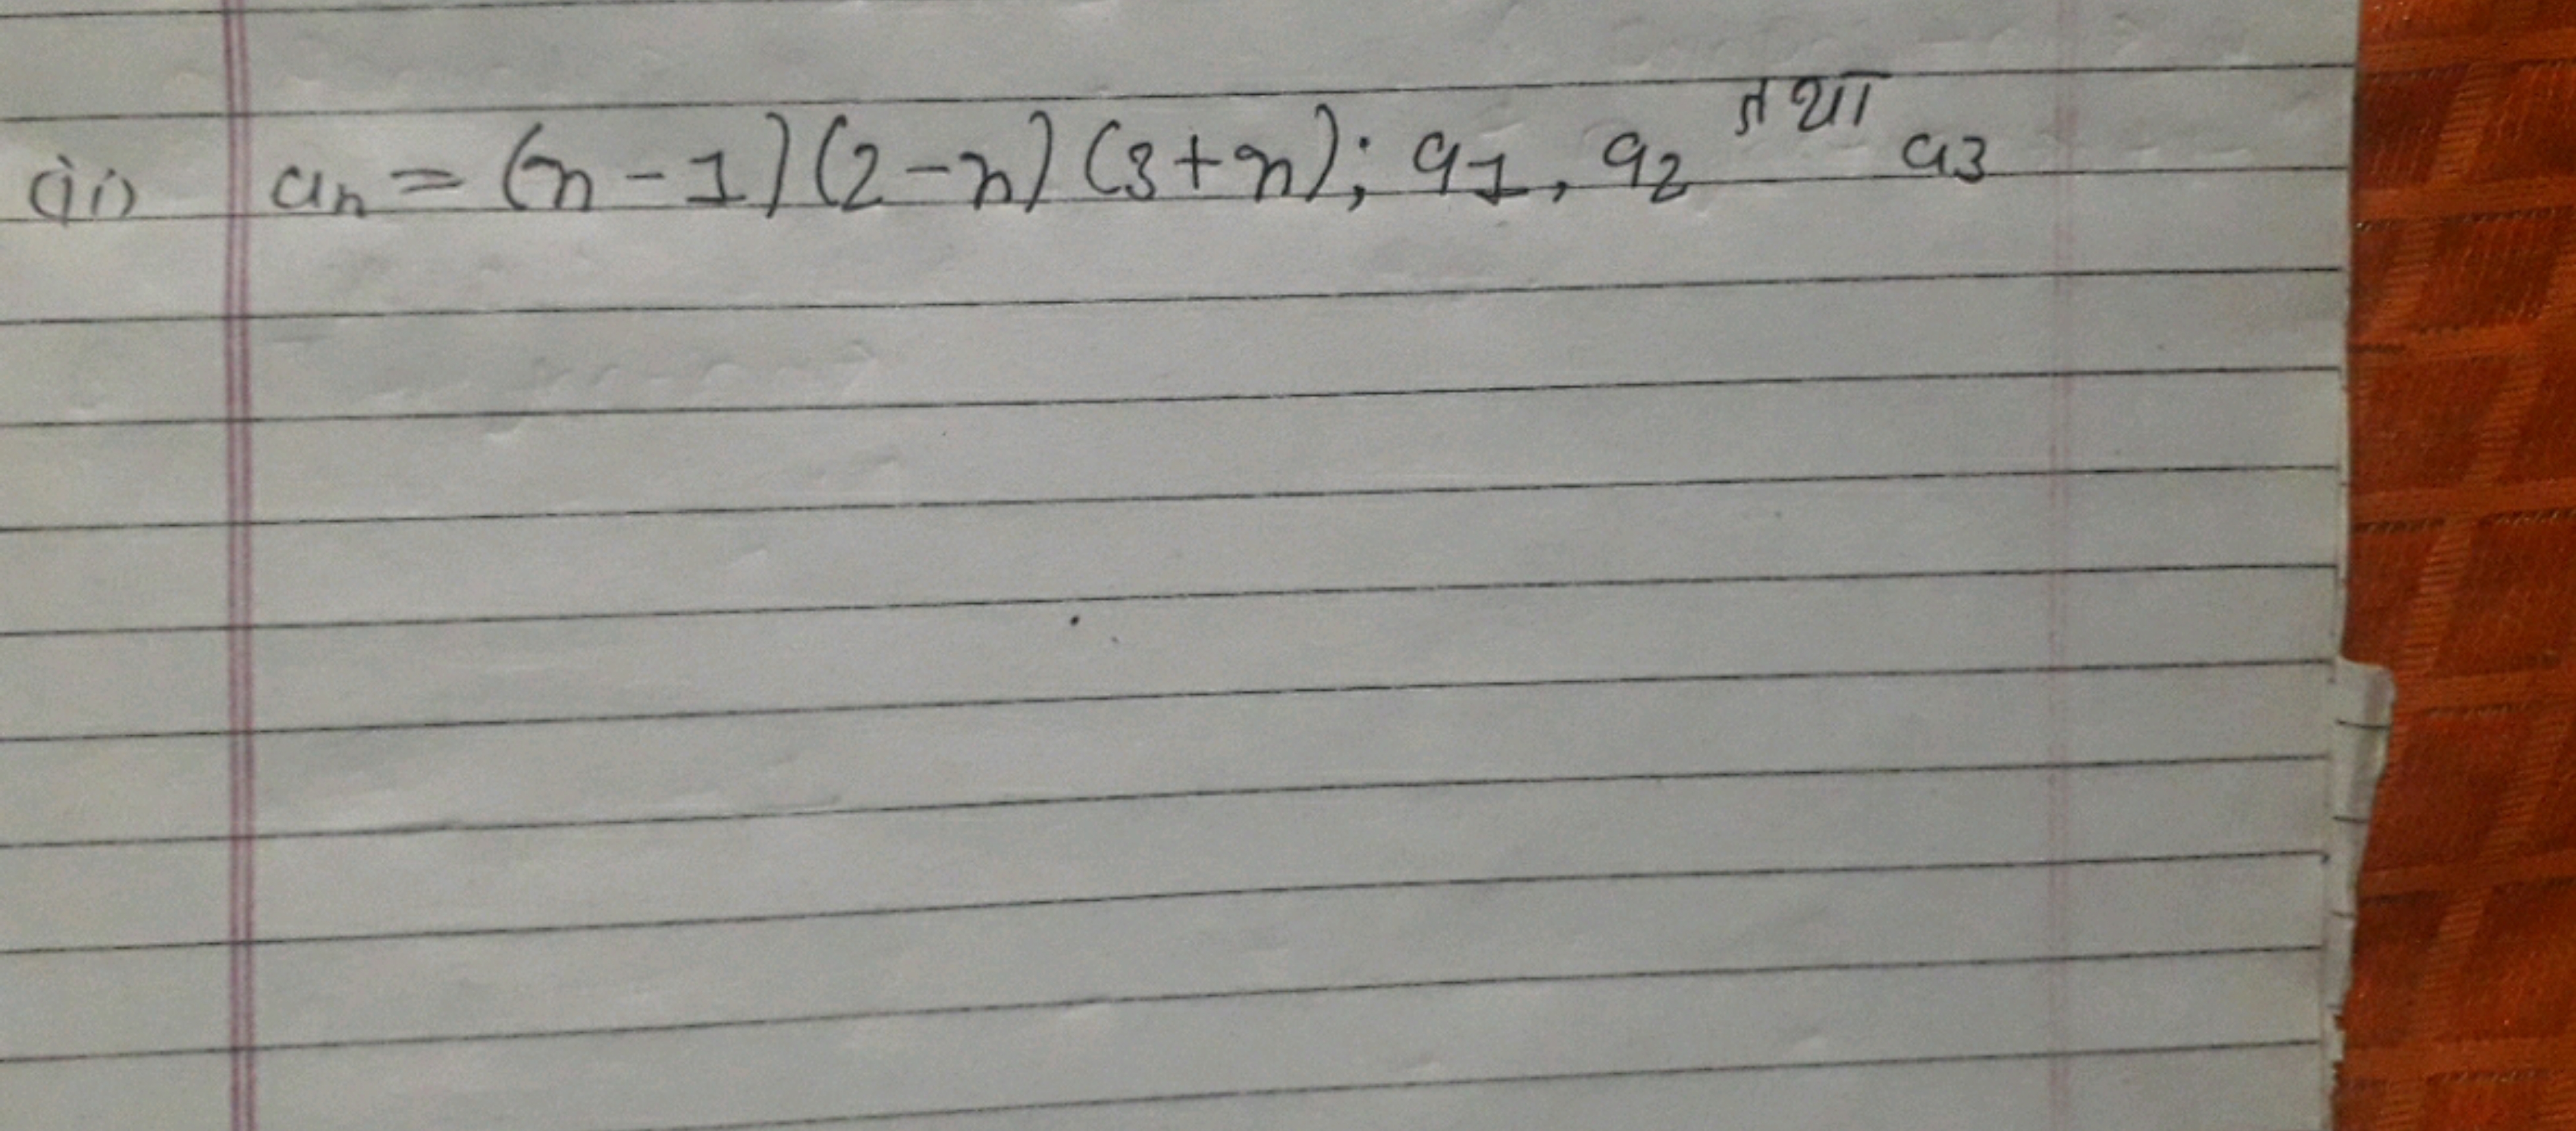 (ii) an = (n-1)(2-n)(3+n); a1, a2 तथा a3